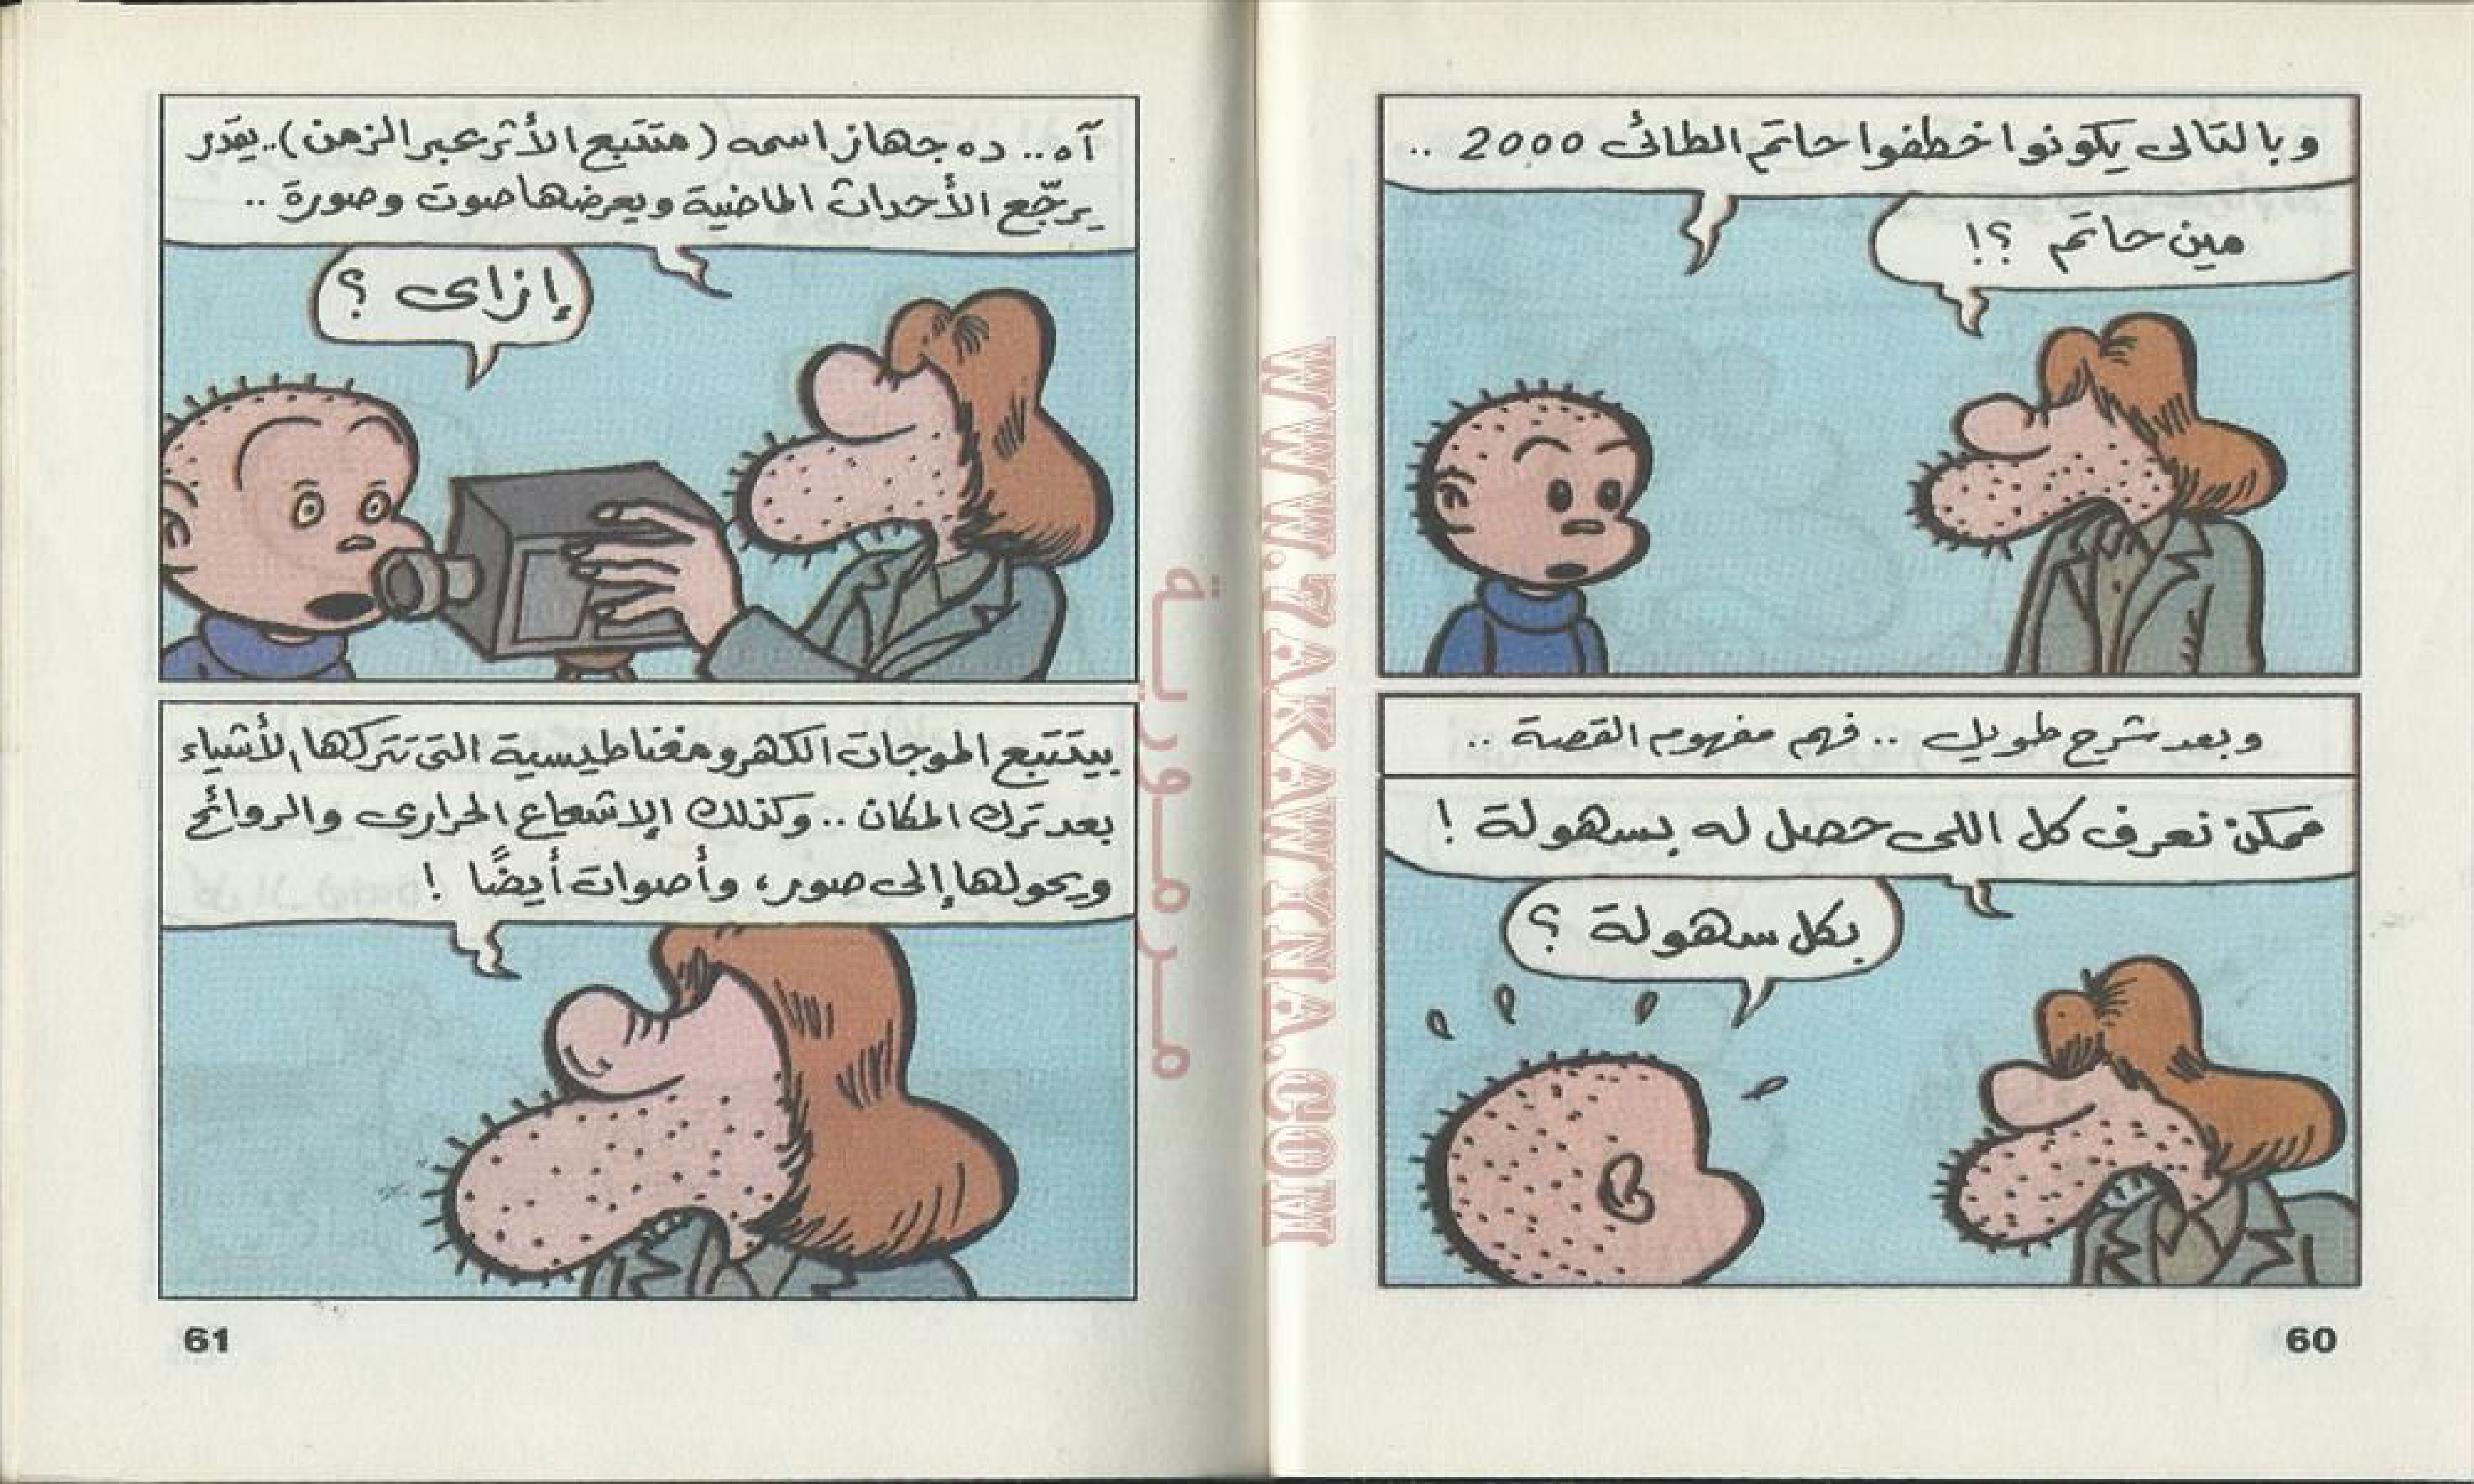 وبالتالى يكونوا خطفوا حاتم الطائى 2000 ..
مين حاتم ؟!
وبعد شرح طويل .. فهم مفهوم القصة ..
ممكن نعرف كل اللى حصل له بسهولة !
بكل سهولة ؟
60
آه.. ده جهاز اسمه (متتبع الأثر عبر الزمن).. يقدر
يرجّع الأحداث الماضية ويعرضها صوت وصورة ..
إزاى ؟
بيتتبع الموجات الكهرومغناطيسية التى تتركها الأشياء
بعد ترك المكان .. وكذلك الإشعاع الحرارى والروائح
ويحولها إلى صور، وأصوات أيضًا !
61
WWW.7AKAWINA.COM
مرمورية